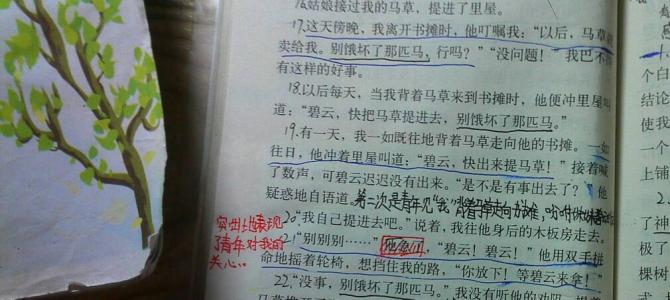 16.姑娘接过我的马草，提进了里屋。
17.这天傍晚，我离开书摊时，他叮嘱我：“以后，马草
卖给我。别饿坏了那匹马，行吗？”“没问题！”我巴不
有这样的好事。
18.以后每天，当我背着马草来到书摊时，他便冲里屋
道：“碧云，快把马草提进去，别饿坏了那匹马。”
19.有一天，我一如既往地背着马草走向他的书摊。一如
往日，他冲着里屋叫道：“碧云，快出来提马草！”接着喊
了数声，可碧云迟迟没有出来。“是不是有事出去了？”他
疑惑地自语道。
第二次是青年见“我”背着马草走向
20.“我自己提进去吧。”说着，我往他身后的木板房走去。
21.“别别别……”他急了，“碧云！碧云！”他用双手拼
命地摇着轮椅，想挡住我的路，“你放下！等碧云来拿！”
22.“没事，别饿坏了那匹马。”我没有听他的劝阻，
突出地表现
了青年对我的
关心..
个白
结论
使我
一个
上铺
了神
极了
棵树